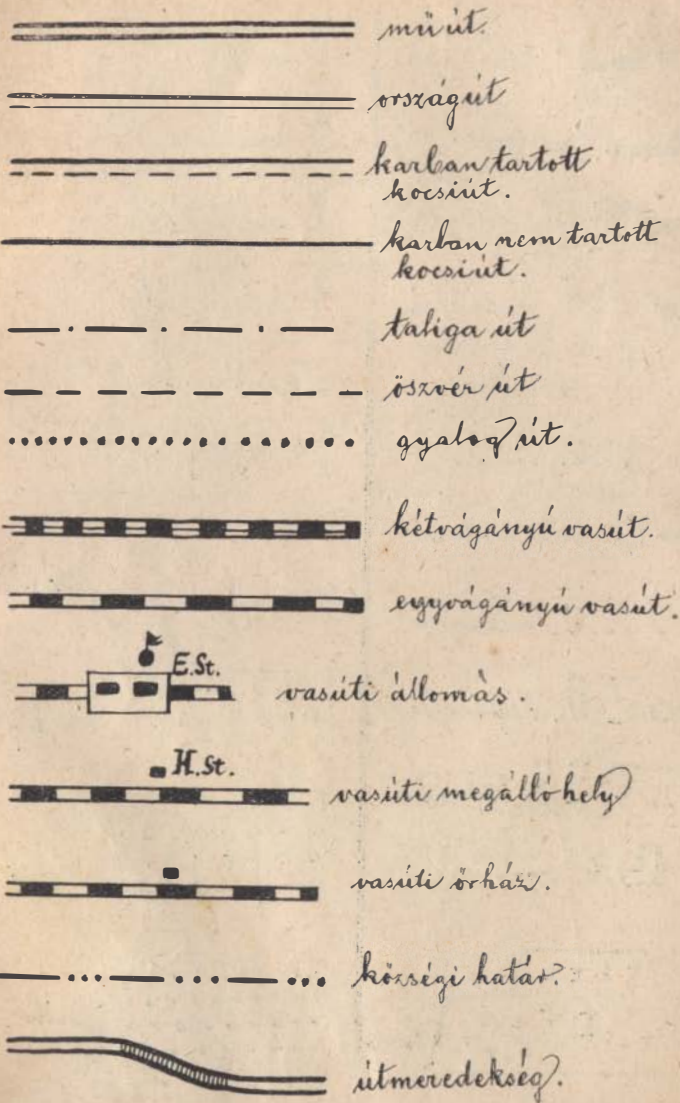 műút.
országút
karban tartott
kocsiút.
karban nem tartott
kocsiút.
taliga út
öszvér út
gyalog út.
kétvágányú vasút.
egyvágányú vasút.
E.St.
vasúti állomás.
H.St.
vasúti megálló hely
vasúti őrház.
községi határ.
útmeredekség.